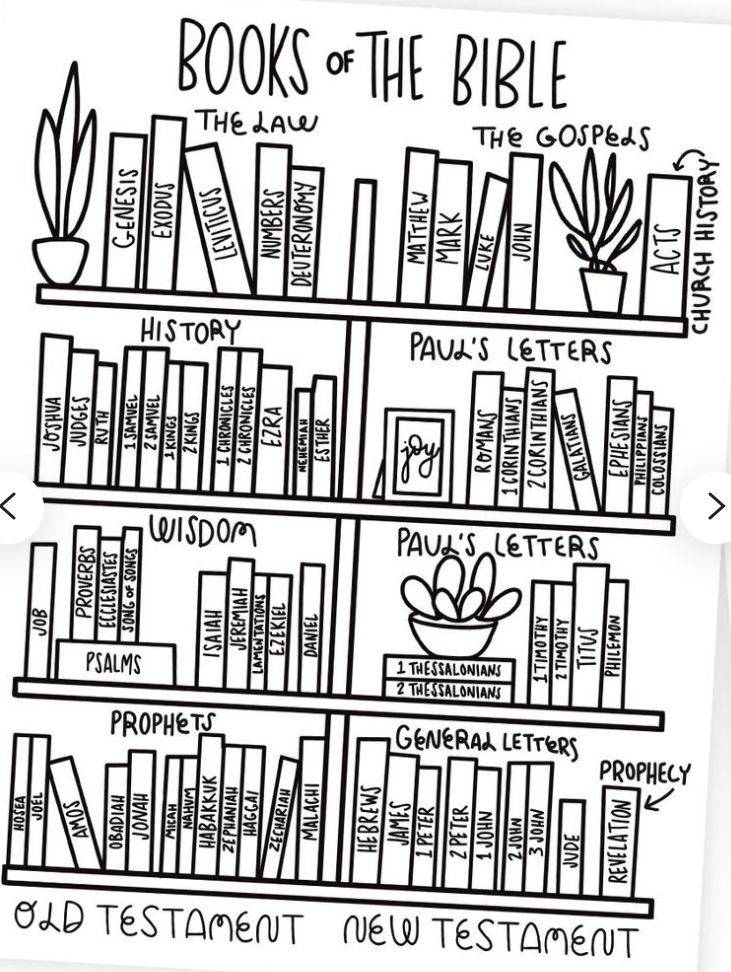 BOOKS OF THE BIBLE
THE LAW
GENESIS
EXODUS
LEVITICUS
NUMBERS
DEUTERONOMY
THE GOSPELS
MATTHEW
MARK
LUKE
JOHN
ACTS
CHURCH HISTORY
HISTORY
JOSHUA
JUDGES
RUTH
1 SAMUEL
2 SAMUEL
1 KINGS
2 KINGS
1 CHRONICLES
2 CHRONICLES
EZRA
NEHEMIAH
ESTHER
PAUL'S LETTERS
joy
ROMANS
1 CORINTHIANS
2 CORINTHIANS
GALATIANS
EPHESIANS
PHILIPPIANS
COLOSSIANS
WISDOM
JOB
PROVERBS
ECCLESIASTES
SONG OF SONGS
PSALMS
ISAIAH
JEREMIAH
LAMENTATIONS
EZEKIEL
DANIEL
PAUL'S LETTERS
1 THESSALONIANS
2 THESSALONIANS
1 TIMOTHY
2 TIMOTHY
TITUS
PHILEMON
PROPHETS
HOSEA
JOEL
AMOS
OBADIAH
JONAH
MICAH
NAHUM
HABAKKUK
ZEPHANIAH
HAGGAI
ZECHARIAH
MALACHI
GENERAL LETTERS
HEBREWS
JAMES
1 PETER
2 PETER
1 JOHN
2 JOHN
3 JOHN
JUDE
PROPHECY
REVELATION
OLD TESTAMENT
NEW TESTAMENT